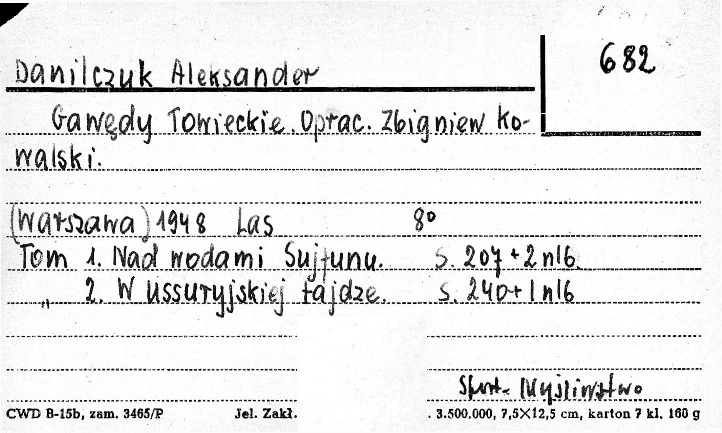 682
Danilczuk Aleksander
Gawędy Łowieckie. Oprac. Zbigniew Ko-
walski.
(Warszawa) 1948 Las 8°
Tom 1. Nad wodami Sujfunu. s. 207 + 2 nlb.
„ 2. W ussuryjskiej tajdze. s. 240 + 1 nlb
Sport - Myślistwo
CWD B-15b, zam. 3465/P Jel. Zakł. . 3.500.000, 7,5×12,5 cm, karton 7 kl. 160 g